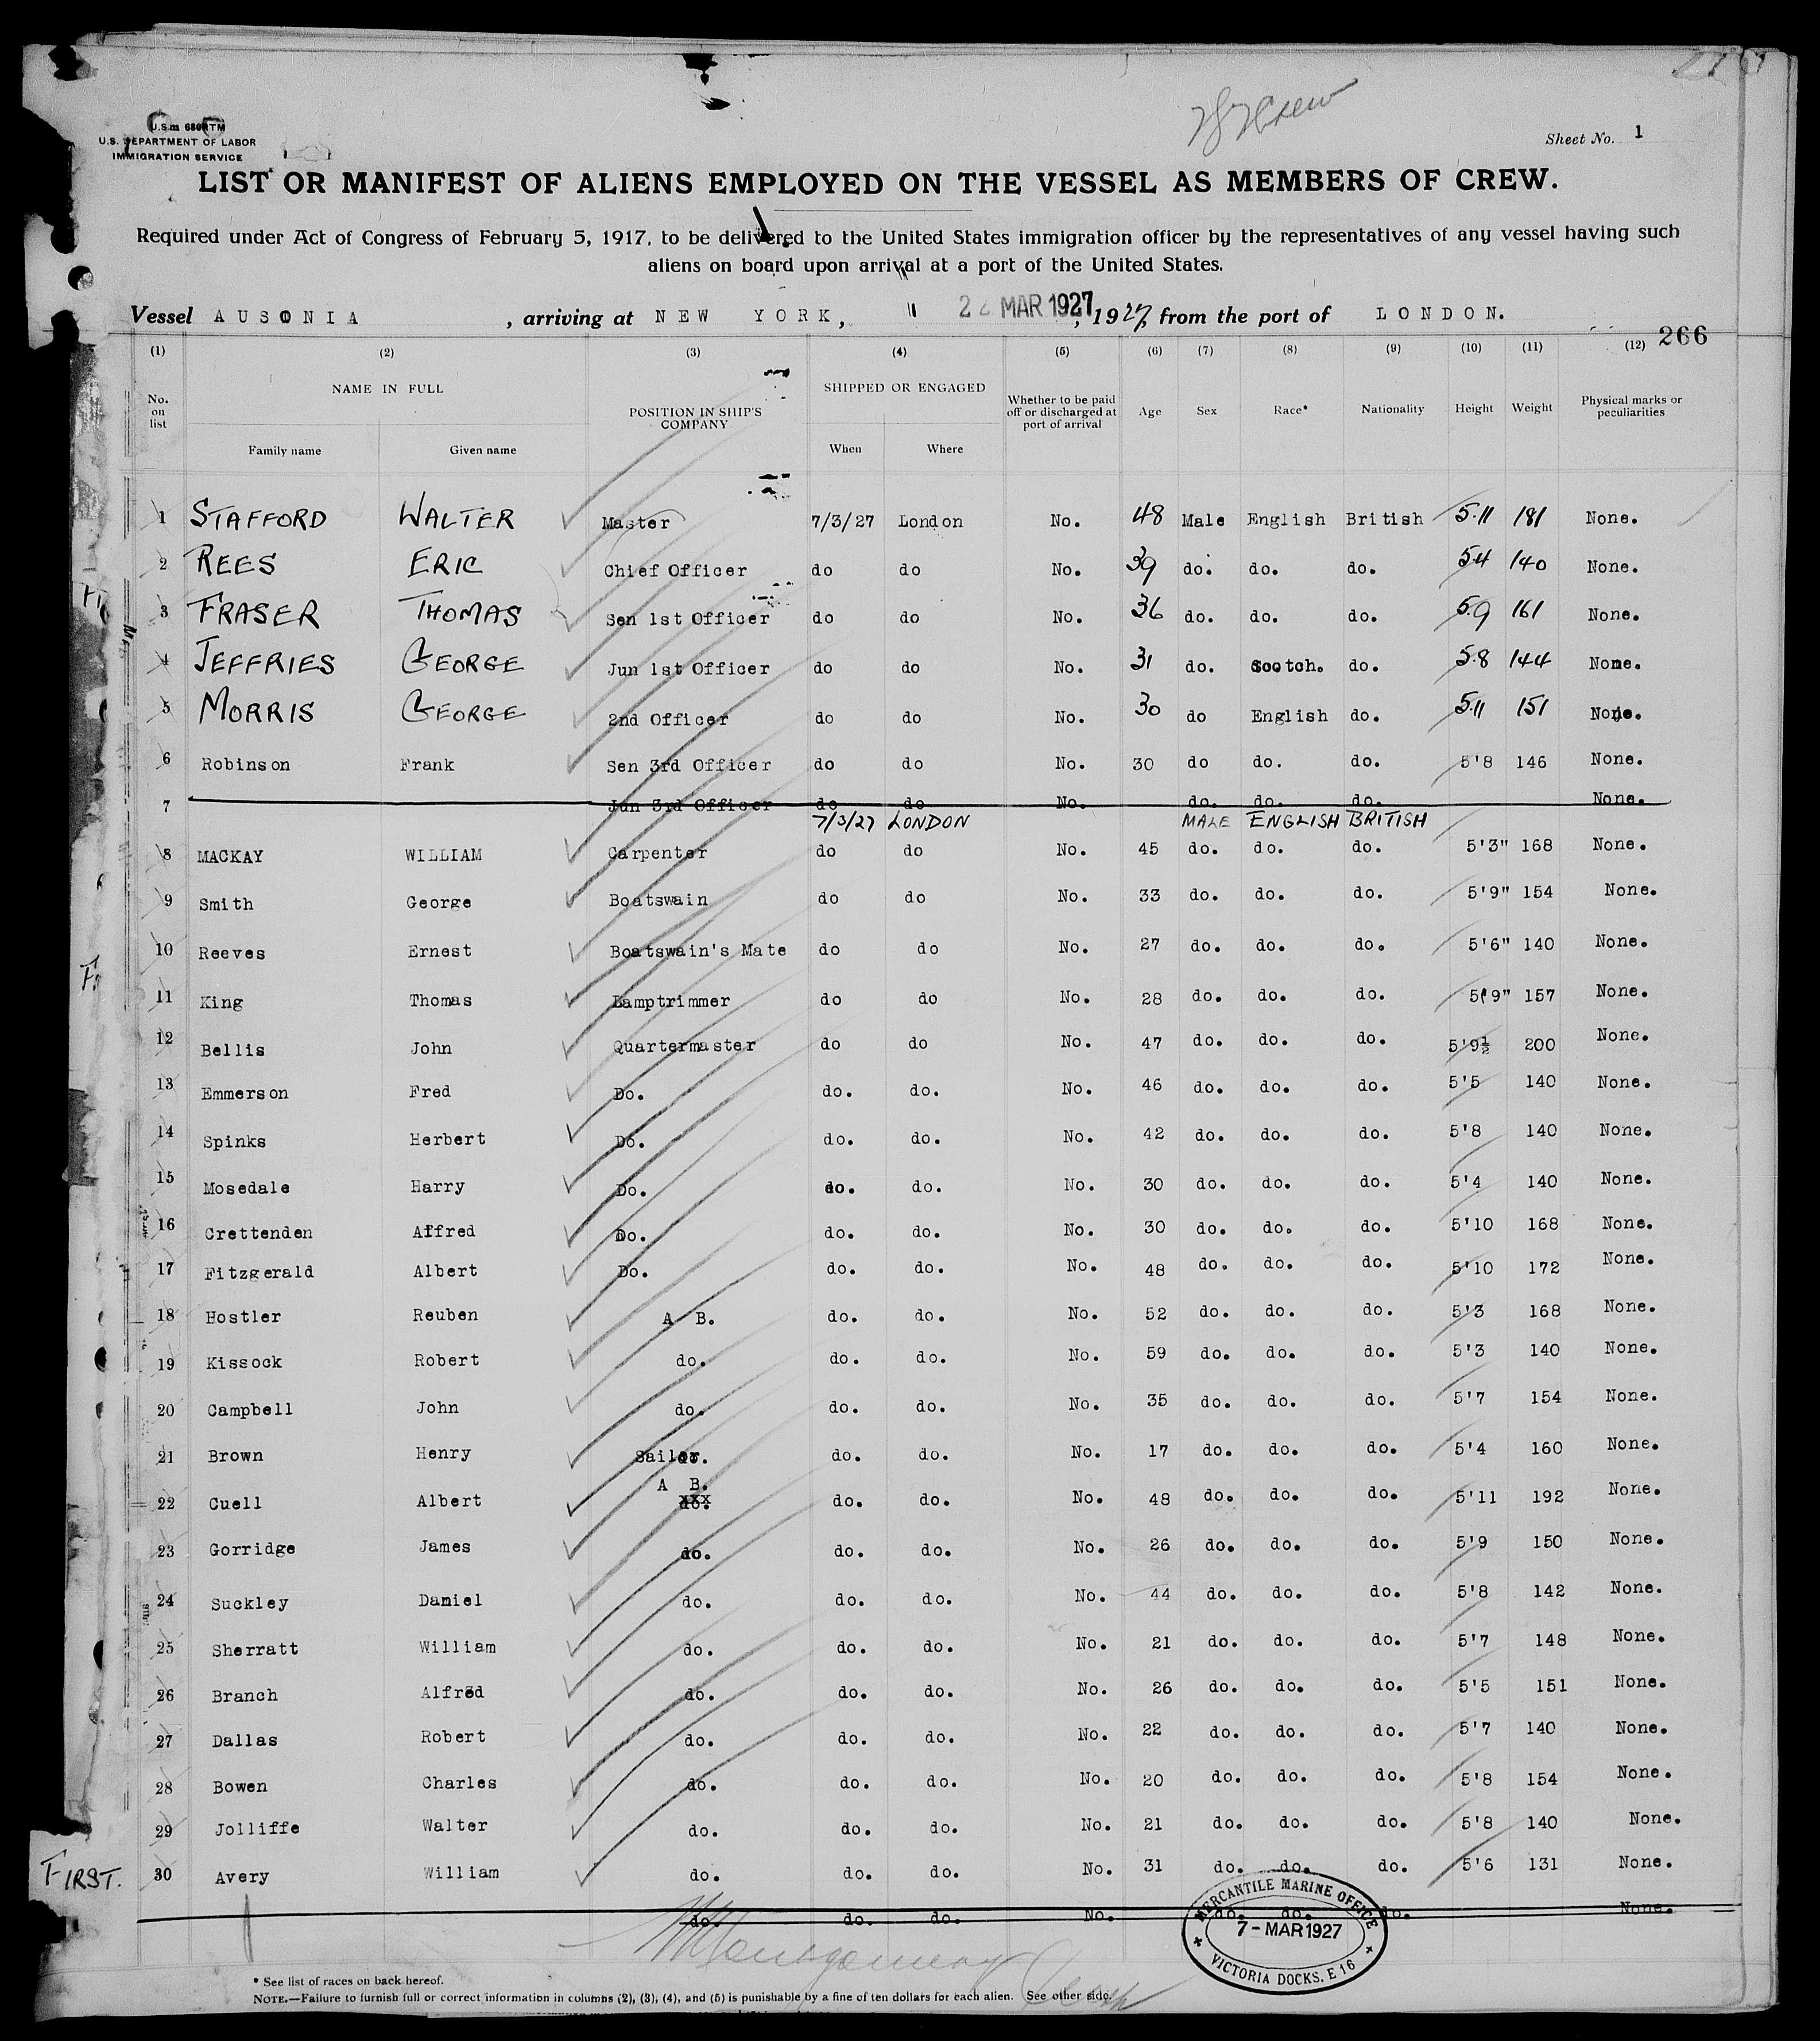 U.S.m 680 RTM
U.S. DEPARTMENT OF LABOR
IMMIGRATION SERVICE
Crew
Sheet No. 1
LIST OR MANIFEST OF ALIENS EMPLOYED ON THE VESSEL AS MEMBERS OF CREW.
Required under Act of Congress of February 5, 1917, to be delivered to the United States immigration officer by the representatives of any vessel having such
aliens on board upon arrival at a port of the United States.
Vessel AUSONIA, arriving at NEW YORK, MAR 1927, 1927, from the port of LONDON.
266
(1) (2) (3) (4) (5) (6) (7) (8) (9) (10) (11) (12)
No. on list NAME IN FULL Family name Given name POSITION IN SHIP'S COMPANY SHIPPED OR ENGAGED When Where Whether to be paid off or discharged at port of arrival Age Sex Race* Nationality Height Weight Physical marks or peculiarities
1 STAFFORD WALTER Master 7/3/27 London No. 48 Male English British 5.11 181 None.
2 REES ERIC Chief Officer do do No. 39 do. do. do. 5.4 140 None.
3 FRASER THOMAS Sen 1st Officer do do No. 36 do. do. do. 5.9 161 None.
4 JEFFRIES GEORGE Jun 1st Officer do do No. 31 do. Scotch. do. 5.8 144 None.
5 MORRIS GEORGE 2nd Officer do do No. 30 do English do. 5.11 151 None.
6 Robinson Frank Sen 3rd Officer do do No. 30 do do. do. 5'8 146 None.
7 Jun 3rd Officer do do No. do. do. do. None.
7/3/27 LONDON MALE ENGLISH BRITISH
8 MACKAY WILLIAM Carpenter do do No. 45 do. do. do. 5'3" 168 None.
9 Smith George Boatswain do do No. 33 do. do. do. 5'9" 154 None.
10 Reeves Ernest Boatswain's Mate do do No. 27 do. do. do. 5'6" 140 None.
11 King Thomas Lamptrimmer do do No. 28 do. do. do. 5'9" 157 None.
12 Bellis John Quartermaster do do No. 47 do. do. do. 5'9½ 200 None.
13 Emmerson Fred Do. do. do. No. 46 do. do. do. 5'5 140 None.
14 Spinks Herbert Do. do. do. No. 42 do. do. do. 5'8 140 None.
15 Mosedale Harry Do. do. do. No. 30 do. do. do. 5'4 140 None.
16 Crettenden Alfred Do. do. do. No. 30 do. do. do. 5'10 168 None.
17 Fitzgerald Albert Do. do. do. No. 48 do. do. do. 5'10 172 None.
18 Hostler Reuben A B. do. do. No. 52 do. do. do. 5'3 168 None.
19 Kissock Robert do. do. do. No. 59 do. do. do. 5'3 140 None.
20 Campbell John do. do. do. No. 35 do. do. do. 5'7 154 None.
21 Brown Henry Sailor. do. do. No. 17 do. do. do. 5'4 160 None.
A B.
22 Cuell Albert do. do. do. No. 48 do. do. do. 5'11 192 None.
23 Gorridge James do. do. do. No. 26 do. do. do. 5'9 150 None.
24 Suckley Daniel do. do. do. No. 44 do. do. do. 5'8 142 None.
25 Sherratt William do. do. do. No. 21 do. do. do. 5'7 148 None.
26 Branch Alfred do. do. do. No. 26 do. do. do. 5'5 151 None.
27 Dallas Robert do. do. do. No. 22 do. do. do. 5'7 140 None.
28 Bowen Charles do. do. do. No. 20 do. do. do. 5'8 154 None.
29 Jolliffe Walter do. do. do. No. 21 do. do. do. 5'8 140 None.
FIRST. 30 Avery William do. do. do. No. 31 do. do. do. 5'6 131 None.
do. do. do. No. do. do. do. None.
MERCANTILE MARINE OFFICE
7 - MAR 1927
VICTORIA DOCKS. E 16
Montgomery
* See list of races on back hereof.
NOTE.—Failure to furnish full or correct information in columns (2), (3), (4), and (5) is punishable by a fine of ten dollars for each alien. See other side.